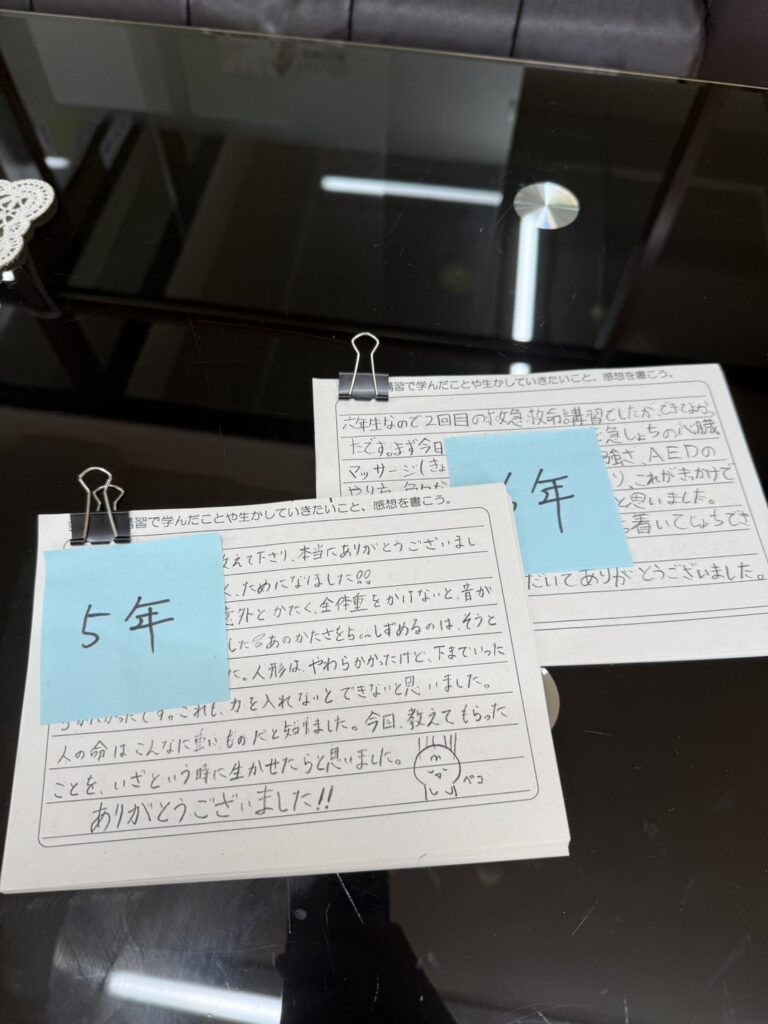 習で学んだことや生かしていきたいこと、感想を書こう。
六年生なので2回目の救急救命講習でしたが、できてよかっ
たです。まず今日
急しょちの心臓
マッサージ
強さ、AEDの
やり方
り、これがきっかけで
年
と思いました。
着いてしょちでき
だいてありがとうございました。
習で学んだことや生かしていきたいこと、感想を書こう。
教えて下さり、本当にありがとうございまし
く、ためになりました!!
5年
意外とかたく、全体重をかけないと、音が
した あのかたさを5cmしずめるのは、そうと
た。人形は、やわらかかったけど、下までいった
かたかったです。これも、力を入れないとできないと思いました。
人の命はこんなに重いものだと知りました。今日、教えてもらった
ことを、いざという時に生かせたらと思いました。
ペコ
ありがとうございました!!